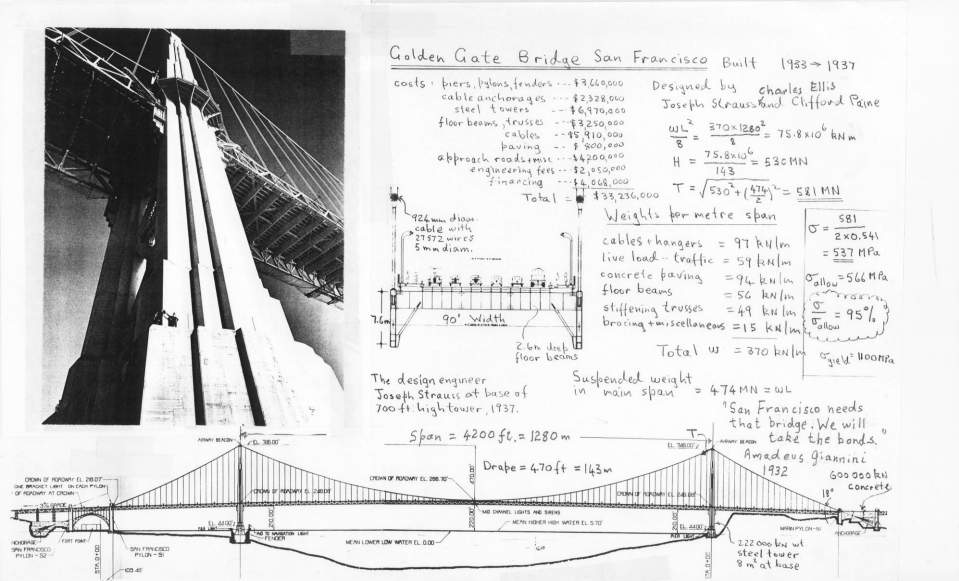 Golden Gate Bridge San Francisco Built 1933→1937
costs: piers, pylons, fenders --- $3,660,000
cable anchorages --- $2,328,000
steel towers --- $6,970,000
floor beams, trusses --- $3,250,000
cables --- $5,910,000
paving --- $ 800,000
approach roads+misc --- $4200,000
engineering fees --- $2,050,000
financing --- $4,068,000
Total = $33,236,000
Designed by Charles Ellis
Joseph Strauss and Clifford Paine
ωL²/8 = 370×1280²/8 = 75.8×10⁶ kNm
H = 75.8×10⁶/143 = 530MN
T = √530²+(474/2)² = 581 MN
924mm diam.
cable with
27572 wires
5mm diam.
7.6m
90' Width
2.6m deep
floor beams
Weights per metre span
cables+hangers = 97 kN/m
live load -- traffic = 59 kN/m
concrete paving = 94 kN/m
floor beams = 56 kN/m
stiffening trusses = 49 kN/m
bracing+miscellaneous = 15 kN/m
Total ω = 370 kN/m
σ = 581/2×0.541
= 537 MPa
σallow = 566 MPa
σ/σallow = 95%
σyield = 1100MPa
The design engineer
Joseph Strauss at base of
700 ft. high tower, 1937.
Suspended weight
in main span = 474 MN = ωL
"San Francisco needs
that bridge. We will
take the bonds."
Amadeus Giannini
1932
600000kN
concrete
Span = 4200 ft. = 1280 m
T
Drape = 470 ft = 143m
18°
AIRWAY BEACON
EL. 746.00'
EL. 746.00'
AIRWAY BEACON
CROWN OF ROADWAY EL. 218.07'
ONE BRACKET LIGHT ON EACH PYLON
OF ROADWAY AT CROWN
CROWN OF ROADWAY EL. 248.08'
CROWN OF ROADWAY EL. 266.70'
470.00'
CROWN OF ROADWAY EL. 248.08'
MID CHANNEL LIGHTS AND SIRENS
210.00'
220.00'
210.00'
MEAN HIGHER HIGH WATER EL. 5.70'
MEAN LOWER LOW WATER EL. 0.00'
EL. 44.00'
PIER LIGHT
AID TO NAVIGATION LIGHT
FENDER
EL. 44.00'
PIER LIGHT
ANCHORAGE
SAN FRANCISCO
PYLON - S2
FORT POINT
SAN FRANCISCO
PYLON - S1
STA. 0+00
MARIN PYLON - N1
ANCHORAGE
222000 kN wt
steel tower
8 m² at base